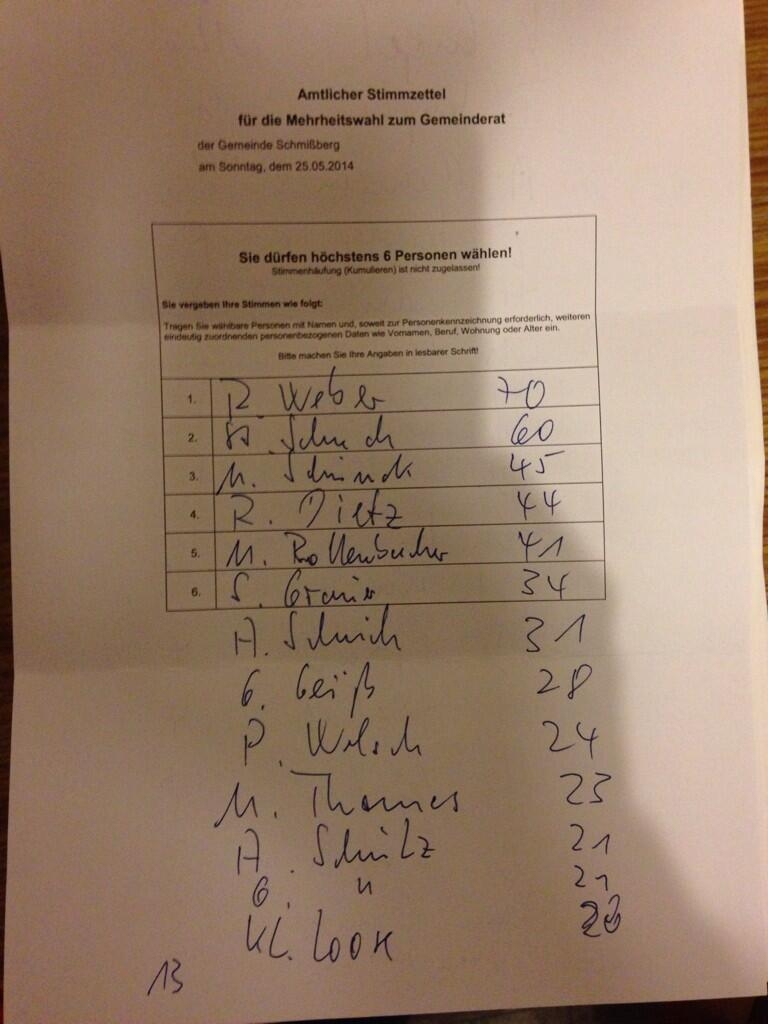 Amtlicher Stimmzettel
für die Mehrheitswahl zum Gemeinderat
der Gemeinde Schmißberg
am Sonntag, dem 25.05.2014
Sie dürfen höchstens 6 Personen wählen!
Stimmenhäufung (Kumulieren) ist nicht zugelassen!
Sie vergeben Ihre Stimmen wie folgt:
Tragen Sie wählbare Personen mit Namen und, soweit zur Personenkennzeichnung erforderlich, weiteren
eindeutig zuordnenden personenbezogenen Daten wie Vornamen, Beruf, Wohnung oder Alter ein.
Bitte machen Sie Ihre Angaben in lesbarer Schrift!
1. R. Weber 70
2. Schuch 60
3. M. 45
4. R. Dietz 44
5. M. Rollenbucher 41
6. S. 34
A. 31
G. Geiß 28
P. Welsch 24
M. Thomes 23
A. Schütz 21
G. " 21
Kl. Look
13